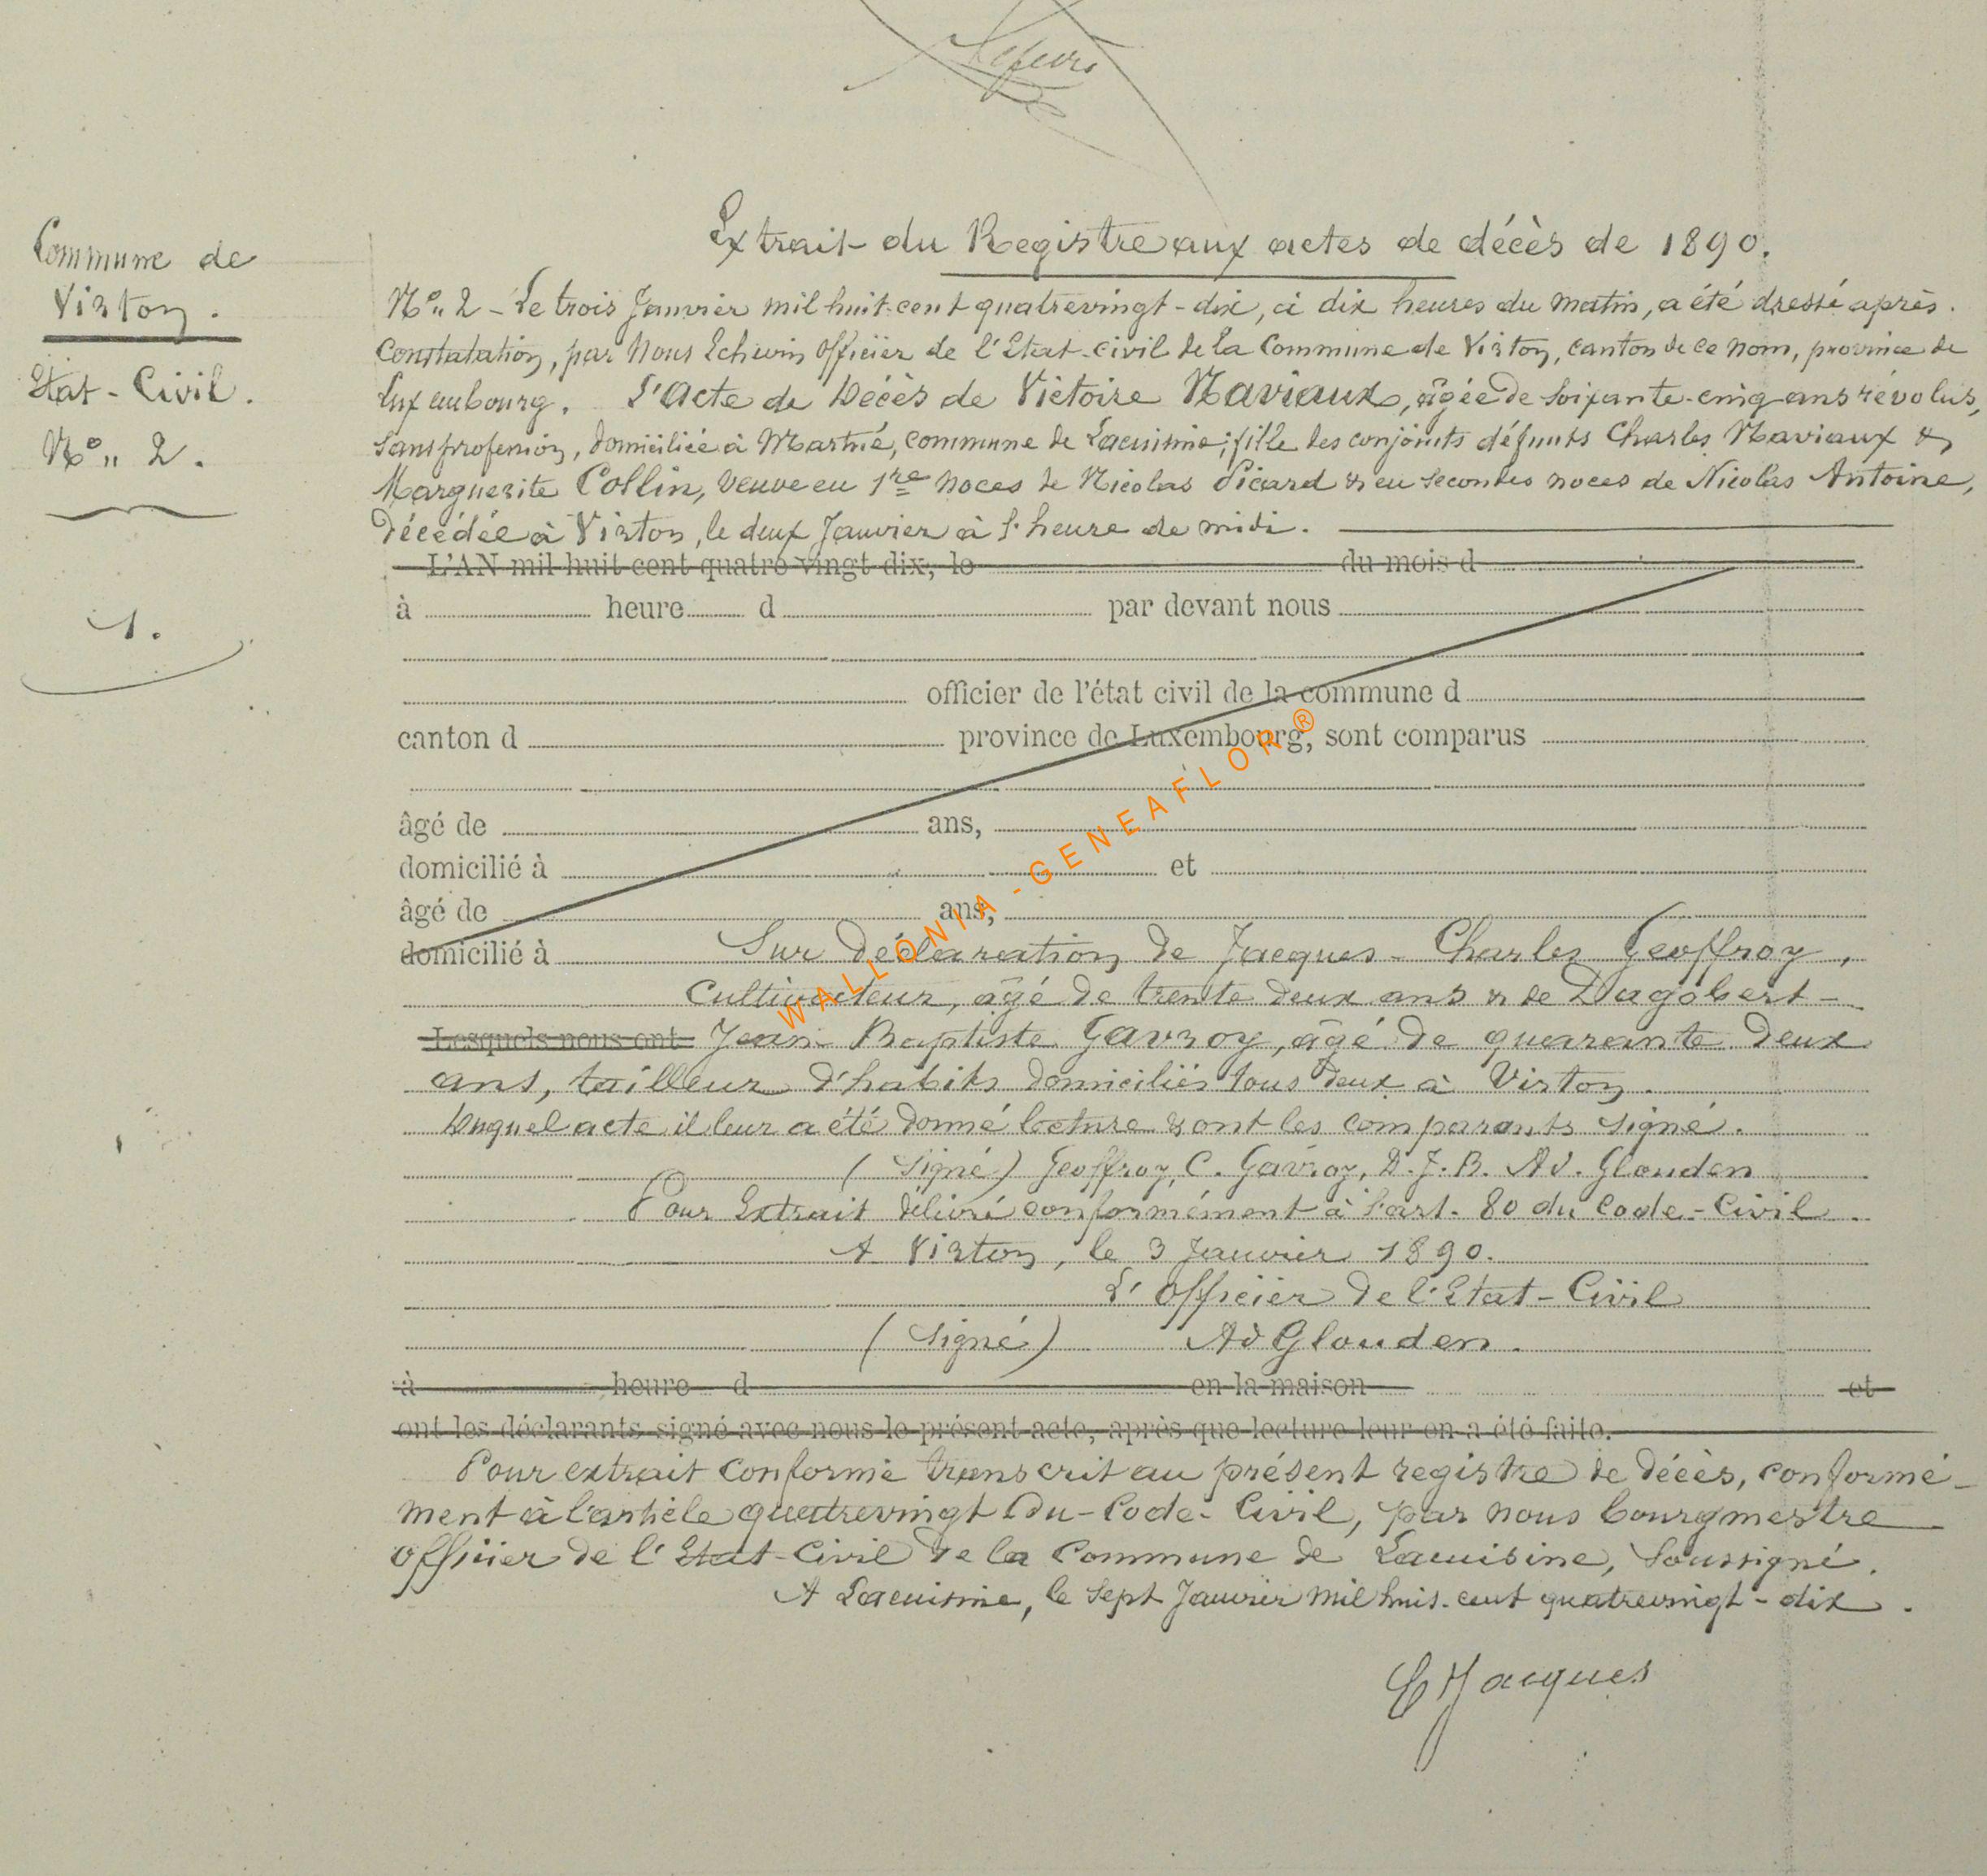 Lefevre
Extrait du Registre aux actes de décès de 1890.
Commune de
Virton.
Etat-Civil.
No" 2.
1.
No" 2 - Le trois Janvier mil huit-cent quatrevingt-dix, à dix heures du matin, a été dressé après
constatation, par Nous Echevin officier de l'Etat-civil de la Commune de Virton, canton de ce nom, province de
Luxembourg. L'Acte de Décès de Victoire Naviaux, âgée de soixante-cinq ans révolus,
sans profession, domiciliée à Martué, commune de Lacuisine; fille des conjoints défunts Charles Naviaux &
Marguerite Collin, veuve en 1re noces de Nicolas Picard & en secondes noces de Nicolas Antoine,
Décédée à Virton, le deux Janvier à l'heure de midi.
L'AN mil huit cent quatre vingt dix, le du mois d
à heure d par devant nous
officier de l'état civil de la commune d
canton d province de Luxembourg, sont comparus
âgé de ans,
domicilié à et
âgé de ans,
domicilié à Sur Déclaration de Jacques-Charles Geoffroy,
Cultivateur, âgé de trente deux ans & de Dagobert-
Lesquels nous ont Jean Baptiste Gavroy, âgé de quarante deux
ans, tailleur d'habits domiciliés tous deux à Virton.
Duquel acte il leur a été donné lecture & ont les comparants signé.
(Signé) Geoffroy, C. Gavroy, D. J. B. Ad. Glouden
Pour Extrait délivré conformément à l'art. 80 du Code-Civil.
A Virton, le 3 Janvier 1890.
L'officier de l'Etat-Civil
(Signé) Ad Glouden.
à heure d en la maison et
ont les déclarants signé avec nous le présent acte, après que lecture leur en a été faite.
Pour extrait conforme transcrit au présent registre de décès, conformé-
ment à l'article quatrevingt du-Code-Civil, par nous bourgmestre
officier de l'Etat-Civil de la Commune de Lacuisine, soussigné.
A Lacuisine, le sept Janvier mil huit-cent quatrevingt-dix.
Jacques
WALLONIA-GENEAFLOR®